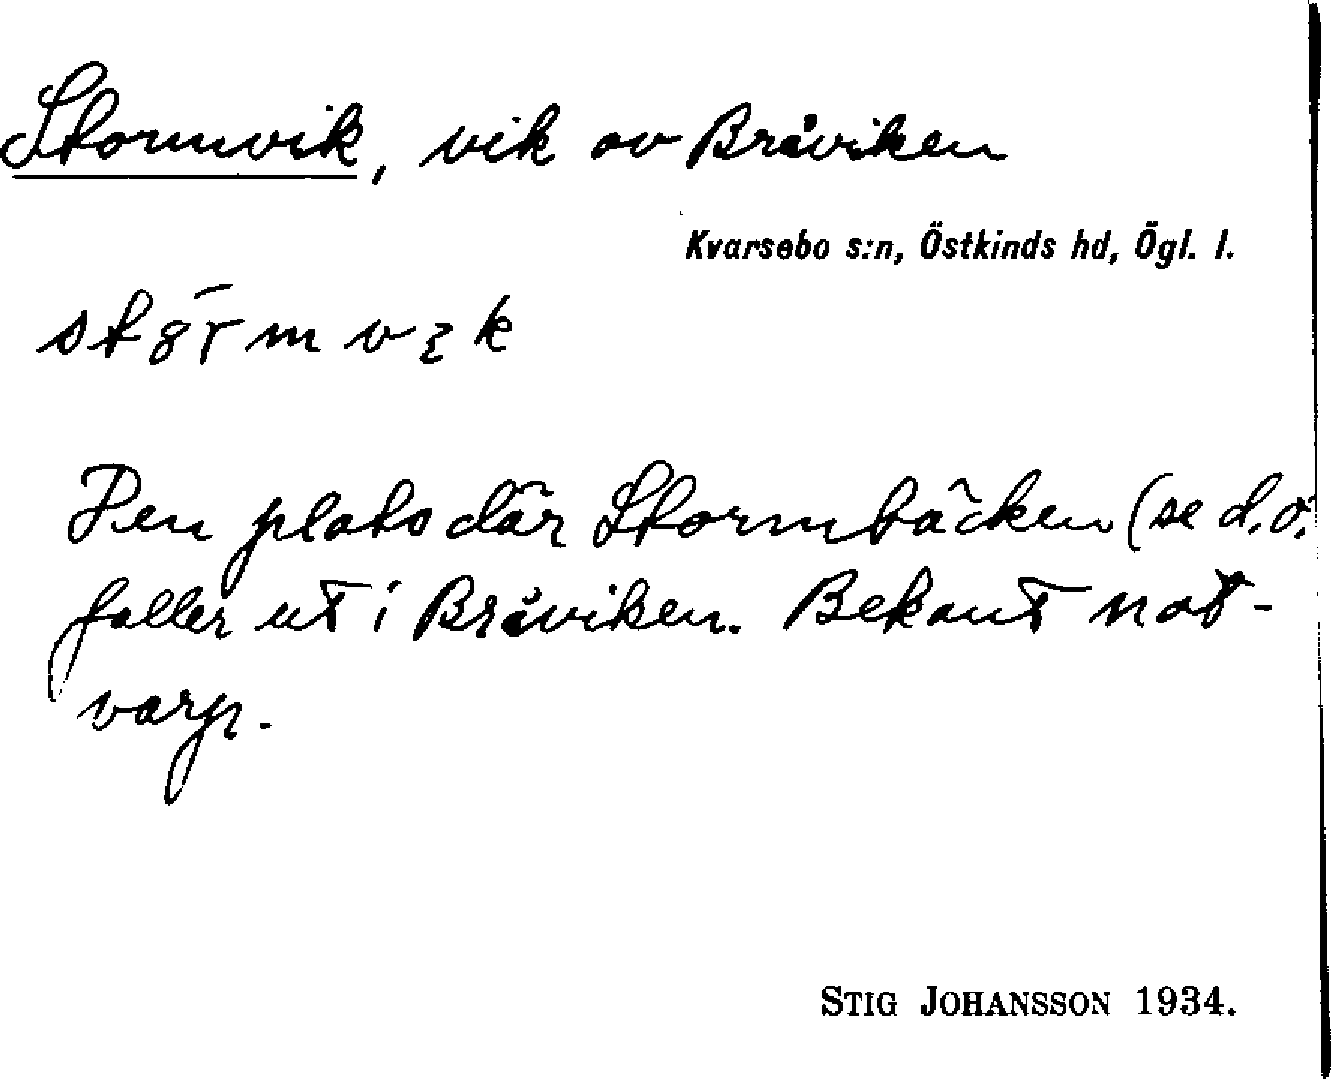 Stormvik, vik av Bråviken
Kvarsebo s:n, Östkinds hd, Ögl. l.
Den plats där Stormbäcken (se d.o.
faller ut i Bråviken. Bekant not-
varp.
STIG JOHANSSON 1934.